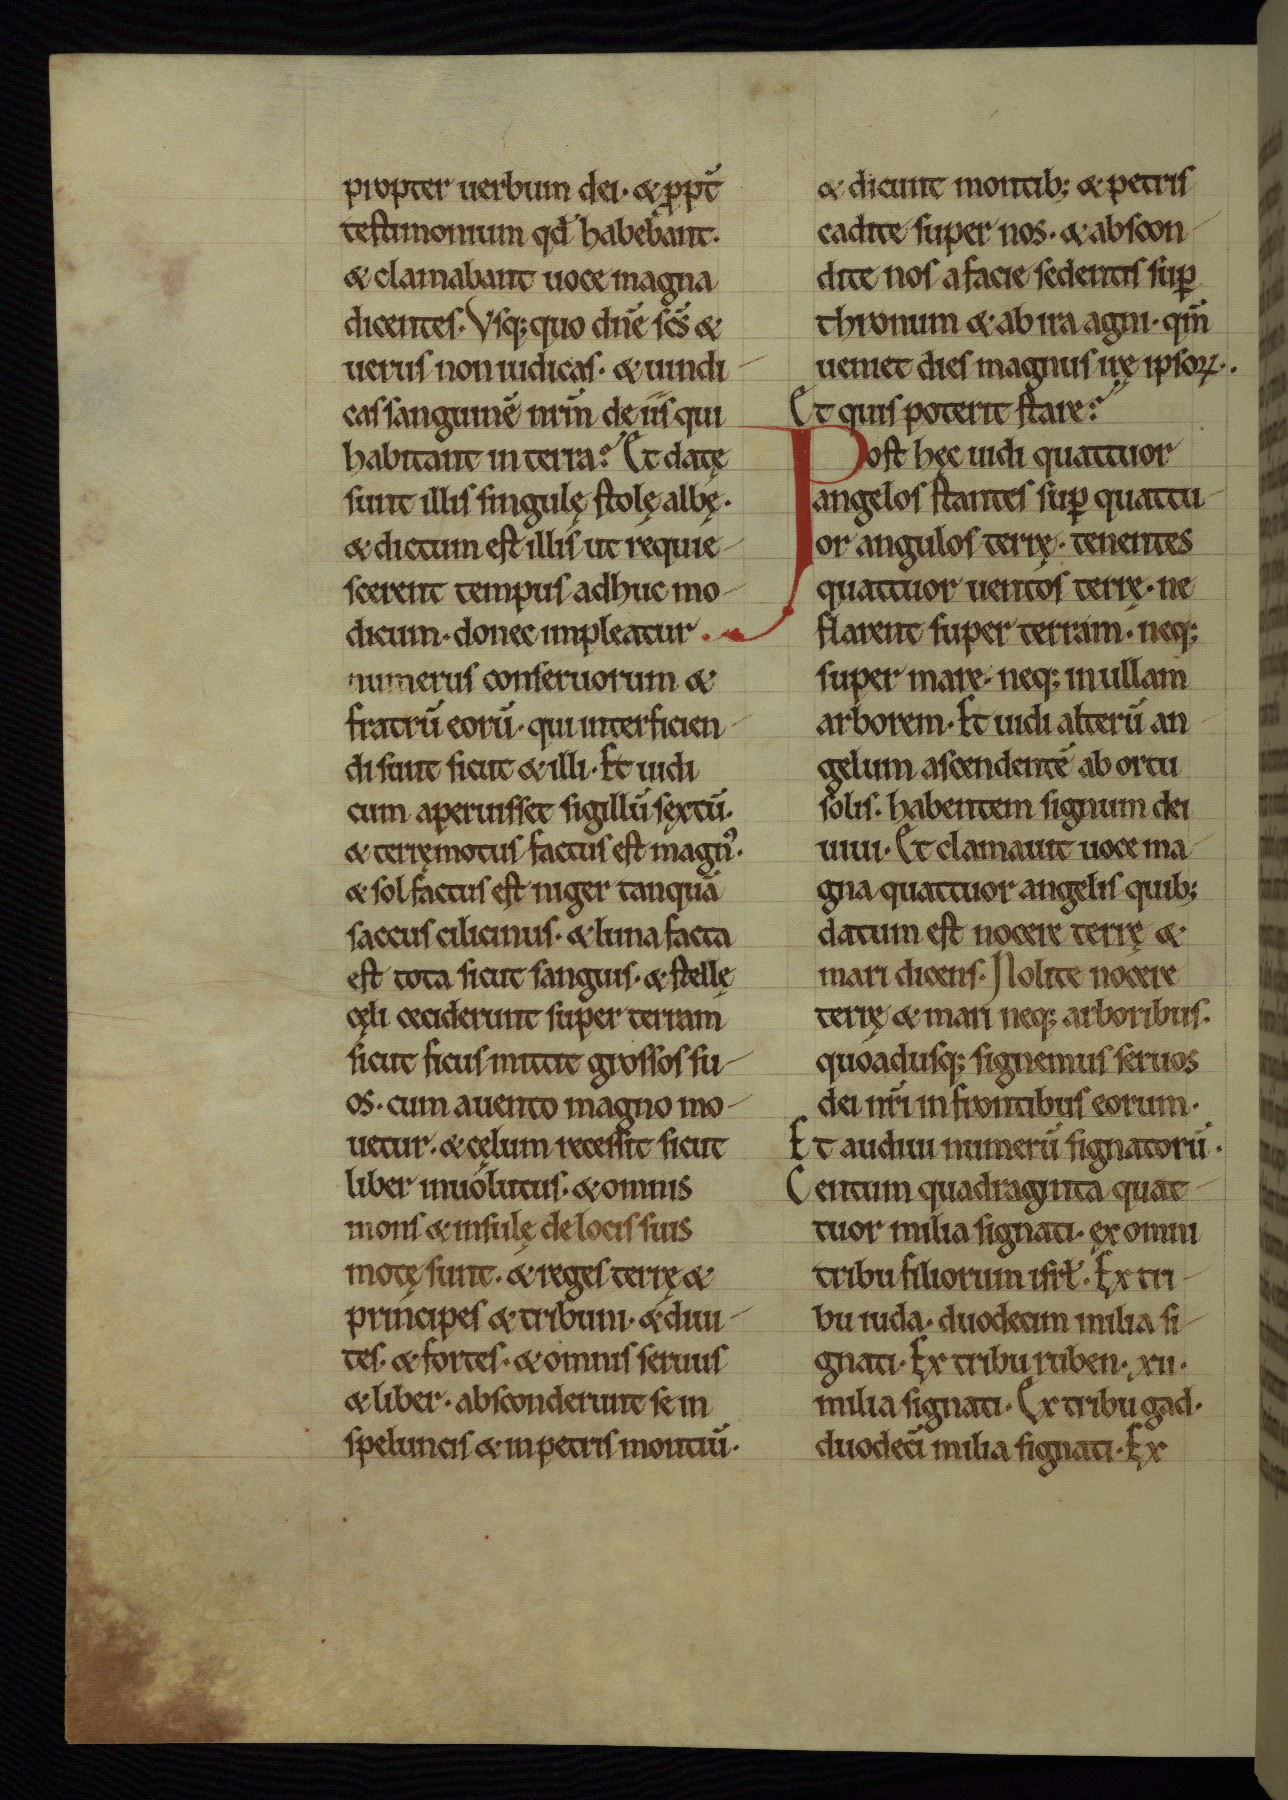 propter uerbum dei· & ꝓpt̄
testimonium qđ habebant·
& clamabant uoce magna
dicentes· Vsq; quo dn̄e sc̄s &
uerus non iudicas· & uindi-
cas sanguinē nrm̄ de iis qui
habitant in terra? Et datę
sunt illis singulę stolę albę·
& dictum est illis ut requie-
scerent tempus adhuc mo-
dicum· donec impleatur
numerus conseruorum &
fratrū eorū· qui interficien-
di sunt sicut & illi· Et uidi
cum aperuisset sigillū sextū·
& terręmotus factus est magnꝰ·
& sol factus est niger tanquā
saccus cilicinus· & luna facta
est tota sicut sanguis· & stellę
cęli ceciderunt super terram
sicut ficus mittit grossos su-
os· cum a uento magno mo-
uetur· & cęlum recessit sicut
liber inuolutus· & omnis
mons & insulę de locis suis
motę sunt· & reges terrę &
principes & tribuni· & diui-
tes· & fortes· & omnis seruus
& liber· absconderunt se in
speluncis & in petris montiū·
& dicunt montib; & petris
cadite super nos· & abscon-
dite nos a facie sedentis suꝑ
thronum & ab ira agni· qm̄
uenit dies magnus irę ipsoꝝ·
Et quis poterit stare?
Post hęc uidi quattuor
angelos stantes suꝑ quattu-
or angulos terrę· tenentes
quattuor uentos terrę· ne
flarent super terram· neq;
super mare· neq; in ullam
arborem· Et uidi alterū an-
gelum ascendentē ab ortu
solis· habentem signum dei
uiui· Et clamauit uoce ma-
gna quattuor angelis quib;
datum est nocere terrę &
mari dicens· Nolite nocere
terrę & mari neq; arboribus·
quoadusq; signemus seruos
dei nr̄i in frontibus eorum·
Et audiui numerū signatorū·
Centum quadraginta quat-
tuor milia signati· ex omni
tribu filiorum isrł· Ex tri-
bu iuda· duodecim milia si-
gnati· Ex tribu ruben· xii·
milia signati· Ex tribu gad·
duodecī milia signati· Ex